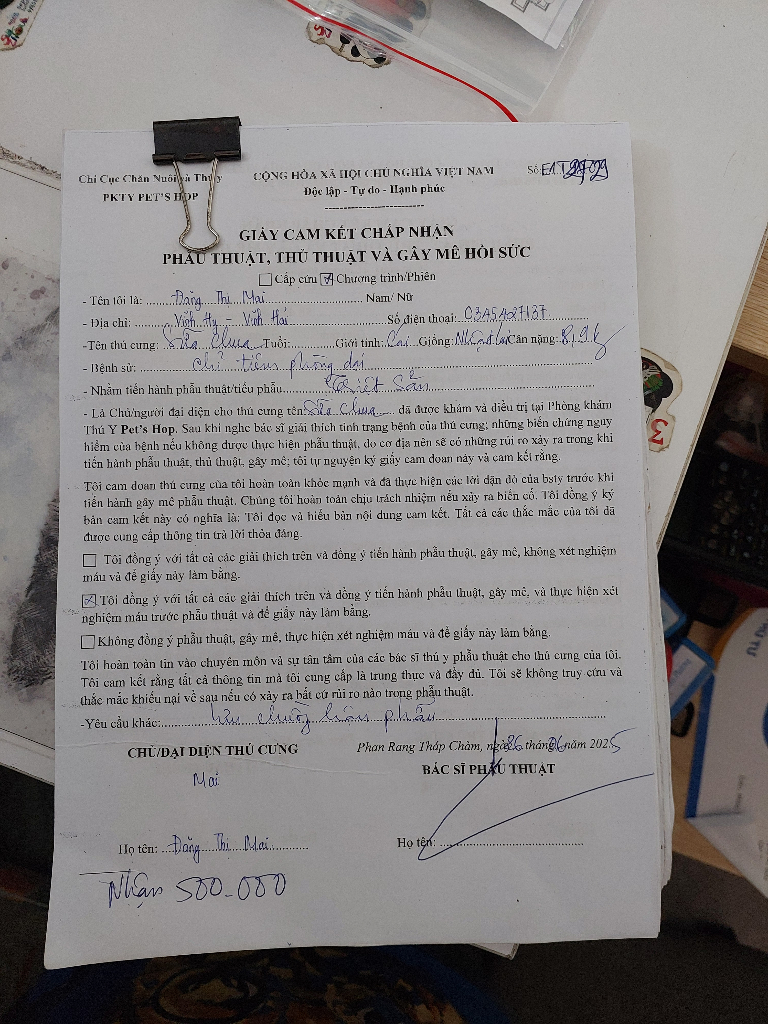 Chi Cục Chăn Nuôi và Thú y
PKTY PET'S HOP
CỘNG HÒA XÃ HỘI CHỦ NGHĨA VIỆT NAM
Độc lập - Tự do - Hạnh phúc
Số:
GIẤY CAM KẾT CHẤP NHẬN
PHẪU THUẬT, THỦ THUẬT VÀ GÂY MÊ HỒI SỨC
Cấp cứu Chương trình/Phiên
- Tên tôi là: Đặng Thị Mai Nam/ Nữ
- Địa chỉ: Vĩnh Hy - Vĩnh Hải Số điện thoại: 0345427137
-Tên thú cưng: Sữa Chua Tuổi: Giới tính: Cái Giống: Cân nặng: 8,9kg
- Bệnh sử: chỉ tiêm phòng dại
- Nhằm tiến hành phẫu thuật/tiểu phẫu Triệt Sản
- Là Chủ/người đại diện cho thú cưng tên Sữa Chua đã được khám và điều trị tại Phòng khám
Thú Y Pet's Hop. Sau khi nghe bác sĩ giải thích tình trạng bệnh của thú cưng; những biến chứng nguy
hiểm của bệnh nếu không được thực hiện phẫu thuật, do cơ địa nên sẽ có những rủi ro xảy ra trong khi
tiến hành phẫu thuật, thủ thuật, gây mê; tôi tự nguyện ký giấy cam đoan này và cam kết rằng.
Tôi cam đoan thú cưng của tôi hoàn toàn khỏe mạnh và đã thực hiện các lời dặn dò của bsty trước khi
tiến hành gây mê phẫu thuật. Chúng tôi hoàn toàn chịu trách nhiệm nếu xảy ra biến cố. Tôi đồng ý ký
bản cam kết này có nghĩa là: Tôi đọc và hiểu bản nội dung cam kết. Tất cả các thắc mắc của tôi đã
được cung cấp thông tin trả lời thỏa đáng.
Tôi đồng ý với tất cả các giải thích trên và đồng ý tiến hành phẫu thuật, gây mê, không xét nghiệm
máu và để giấy này làm bằng.
Tôi đồng ý với tất cả các giải thích trên và đồng ý tiến hành phẫu thuật, gây mê, và thực hiện xét
nghiệm máu trước phẫu thuật và để giấy này làm bằng.
Không đồng ý phẫu thuật, gây mê, thực hiện xét nghiệm máu và để giấy này làm bằng.
Tôi hoàn toàn tin vào chuyên môn và sự tận tâm của các bác sĩ thú y phẫu thuật cho thú cưng của tôi.
Tôi cam kết rằng tất cả thông tin mà tôi cung cấp là trung thực và đầy đủ. Tôi sẽ không truy cứu và
thắc mắc khiếu nại về sau nếu có xảy ra bất cứ rủi ro nào trong phẫu thuật.
-Yêu cầu khác: lưu chuồng hậu phẫu
CHỦ/ĐẠI DIỆN THÚ CƯNG
Phan Rang Tháp Chàm, ngày 26 tháng 06 năm 2025
BÁC SĨ PHẪU THUẬT
Mai
Họ tên: Đặng Thị Mai
Họ tên:
Nhận 500.000